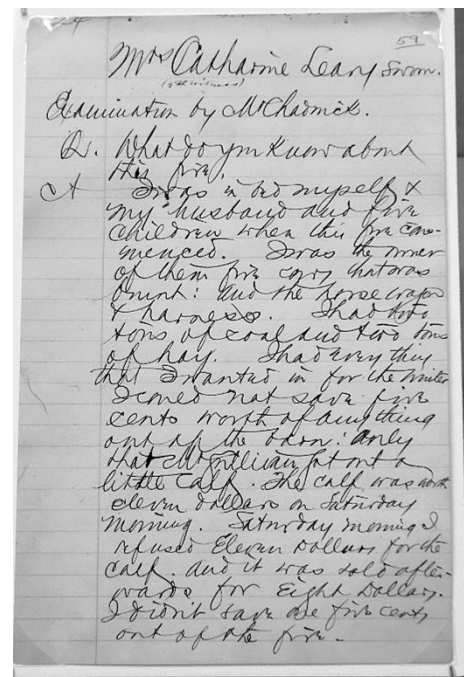 59
Mrs Catharine Leary Sworn.
Examination by Mr Chadwick.
Q. What do you know about
this fire.
A I was in bed myself &
my husband and five
children when this fire com-
menced. I was the owner
of them five cows that was
burnt: and the horse wagon
& harness. I had two
tons of coal and two tons
of hay. I had everything
that I wanted in for the winter
I could not save five
cents worth of anything
out of the barn: only
that Mr Sullivan got out a
little calf. The calf was worth
eleven dollars on Saturday
morning. Saturday morning I
refused Eleven Dollars for the
calf. and it was sold after-
wards for Eight Dollars.
I didn't save one five cents
out of the fire.